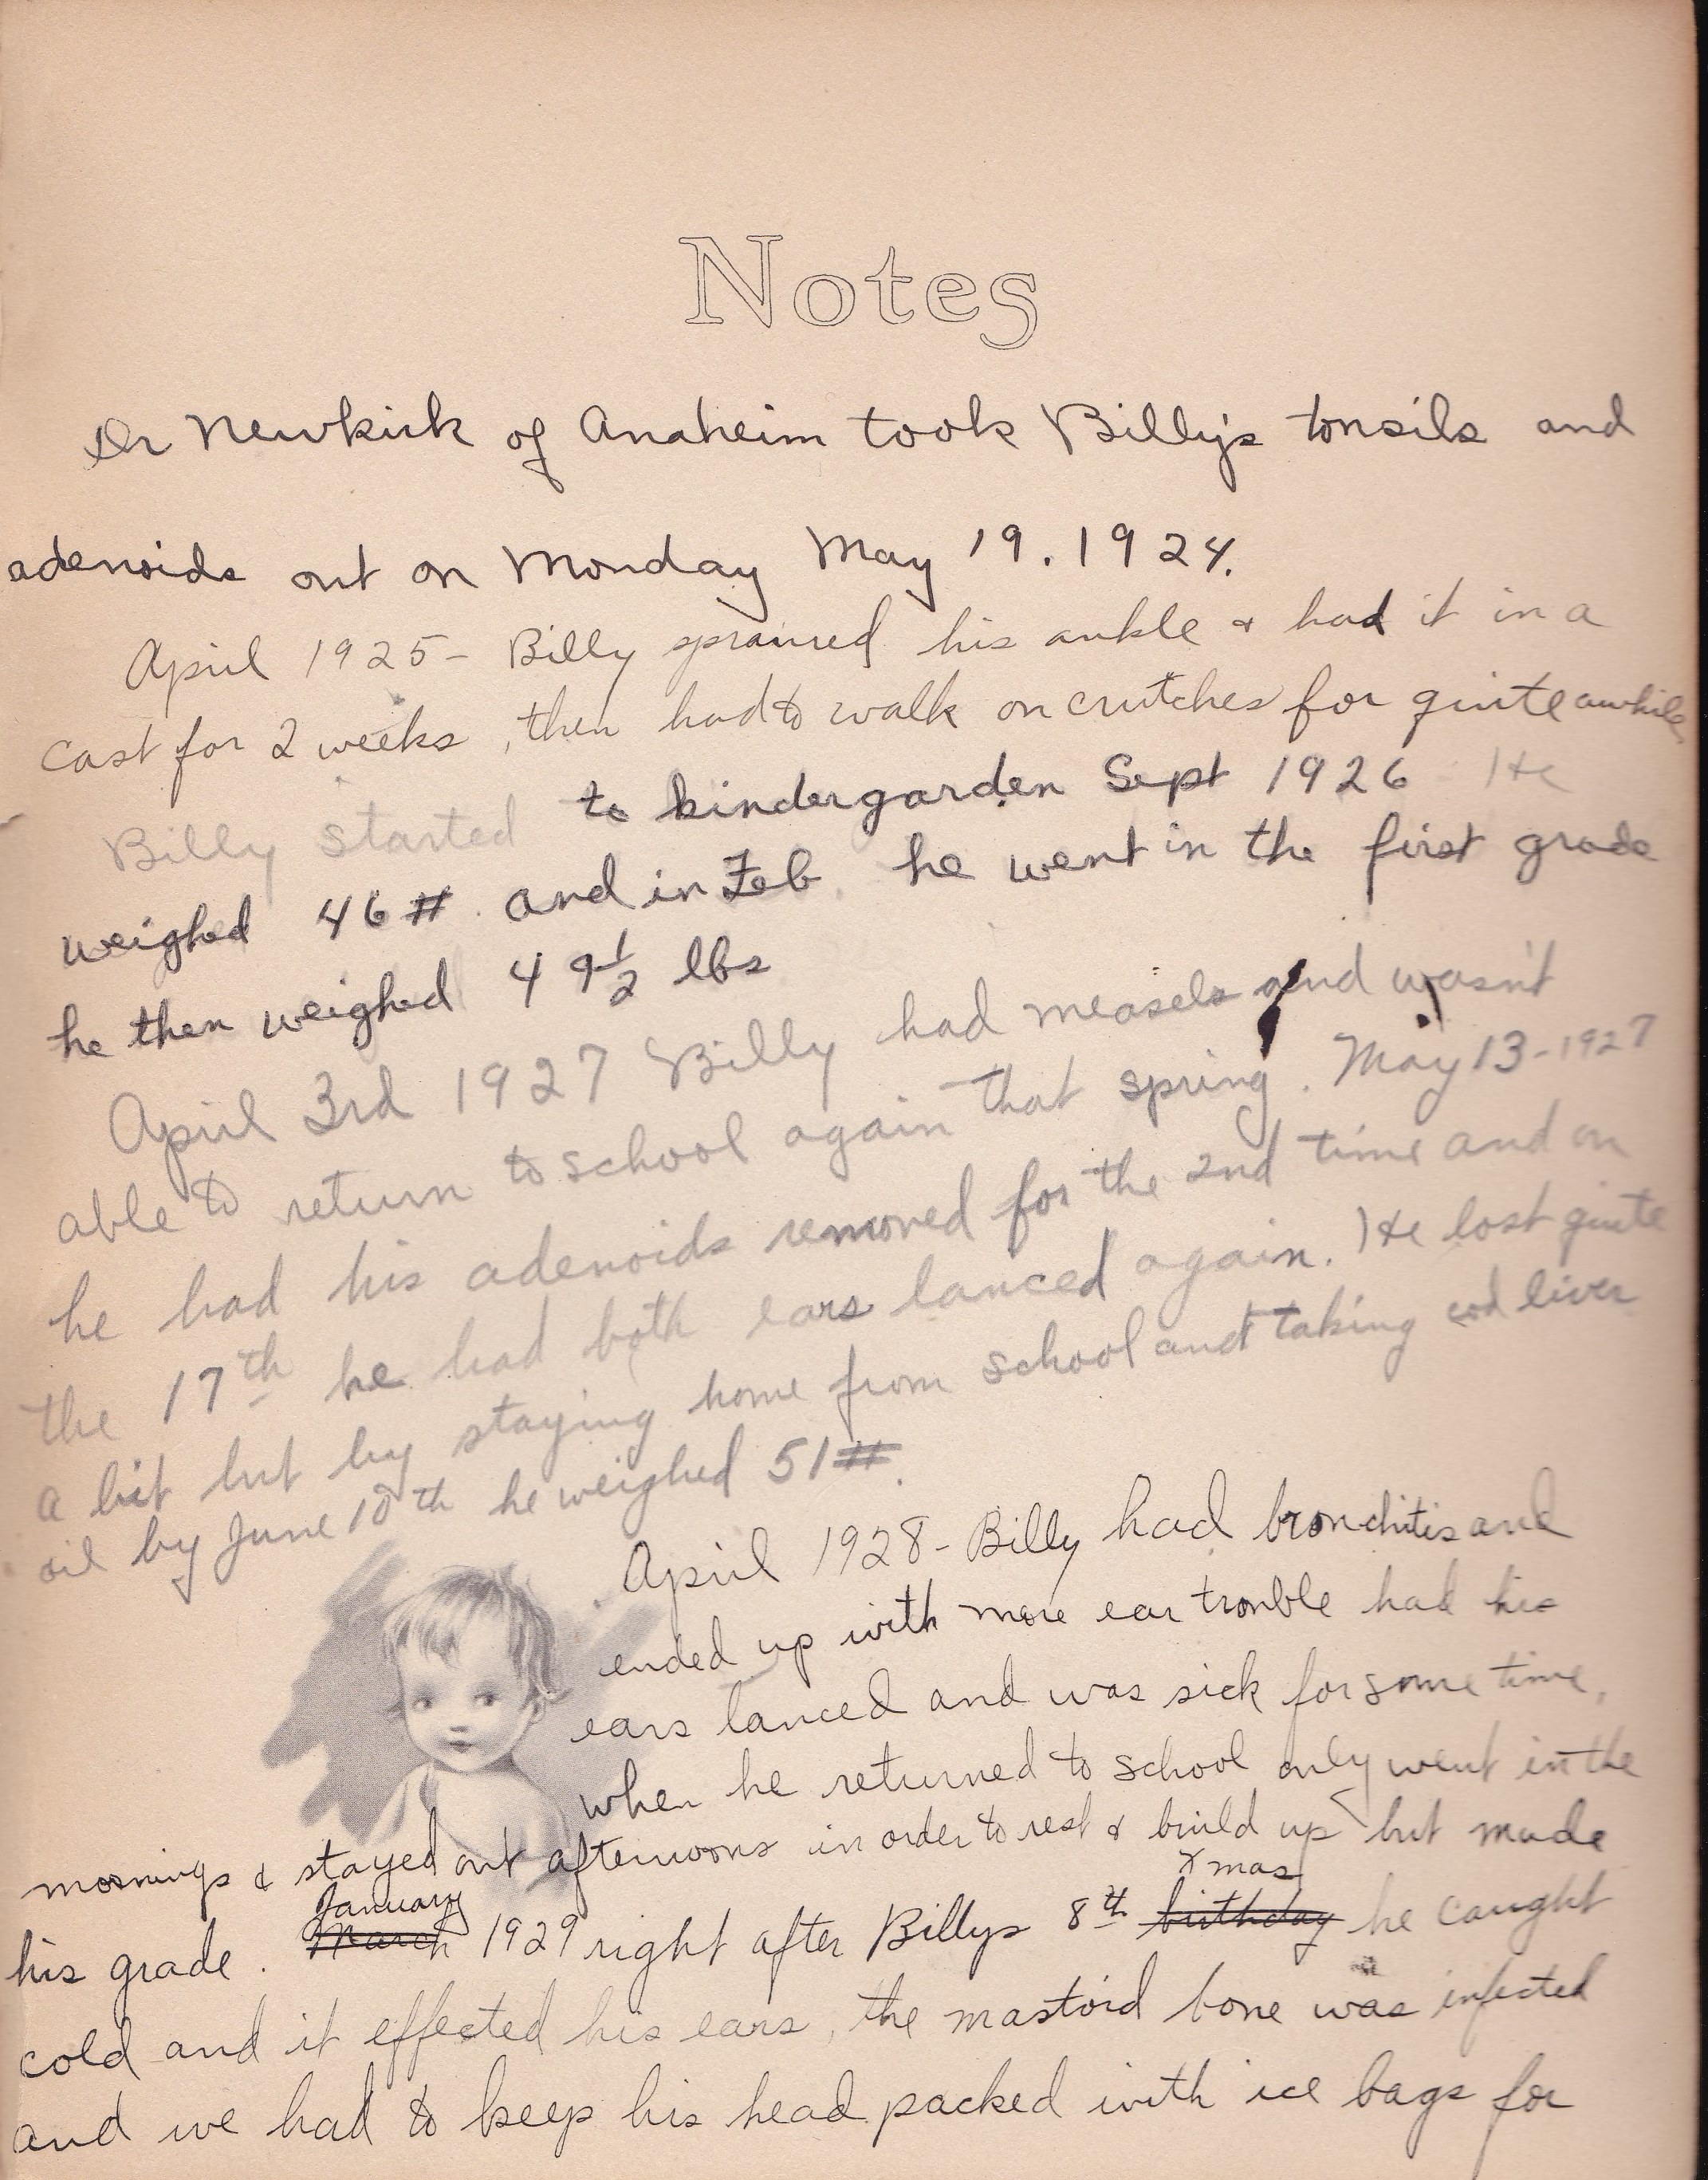 Notes
Dr Newkirk of Anaheim took Billy's tonsils and
adenoids out on Monday May 19. 1924.
April 1925- Billy sprained his ankle & had it in a
cast for 2 weeks, then had to walk on crutches for quite awhile
Billy started to kindergarden Sept 1926 He
weighed 46# and in Feb. he went in the first grade
he then weighed 49½ lbs
April 3rd 1927 Billy had measels and wasn't
able to return to school again that spring. May 13-1927
he had his adenoids removed for the 2nd time and on
the 17th he had both ears lanced again. He lost quite
a bit but by staying home from school and taking cod liver
oil by June 10th he weighed 51#.
April 1928- Billy had bronchitis and
ended up with more ear trouble had his
ears lanced and was sick for some time,
when he returned to school only went in the
mornings & stayed out afternoons in order to rest & build up but made
his grade. March January 1929 right after Billys 8th birthday Xmas he caught
cold and it effected his ears, the mastoid bone was infected
and we had to keep his head packed with ice bags for